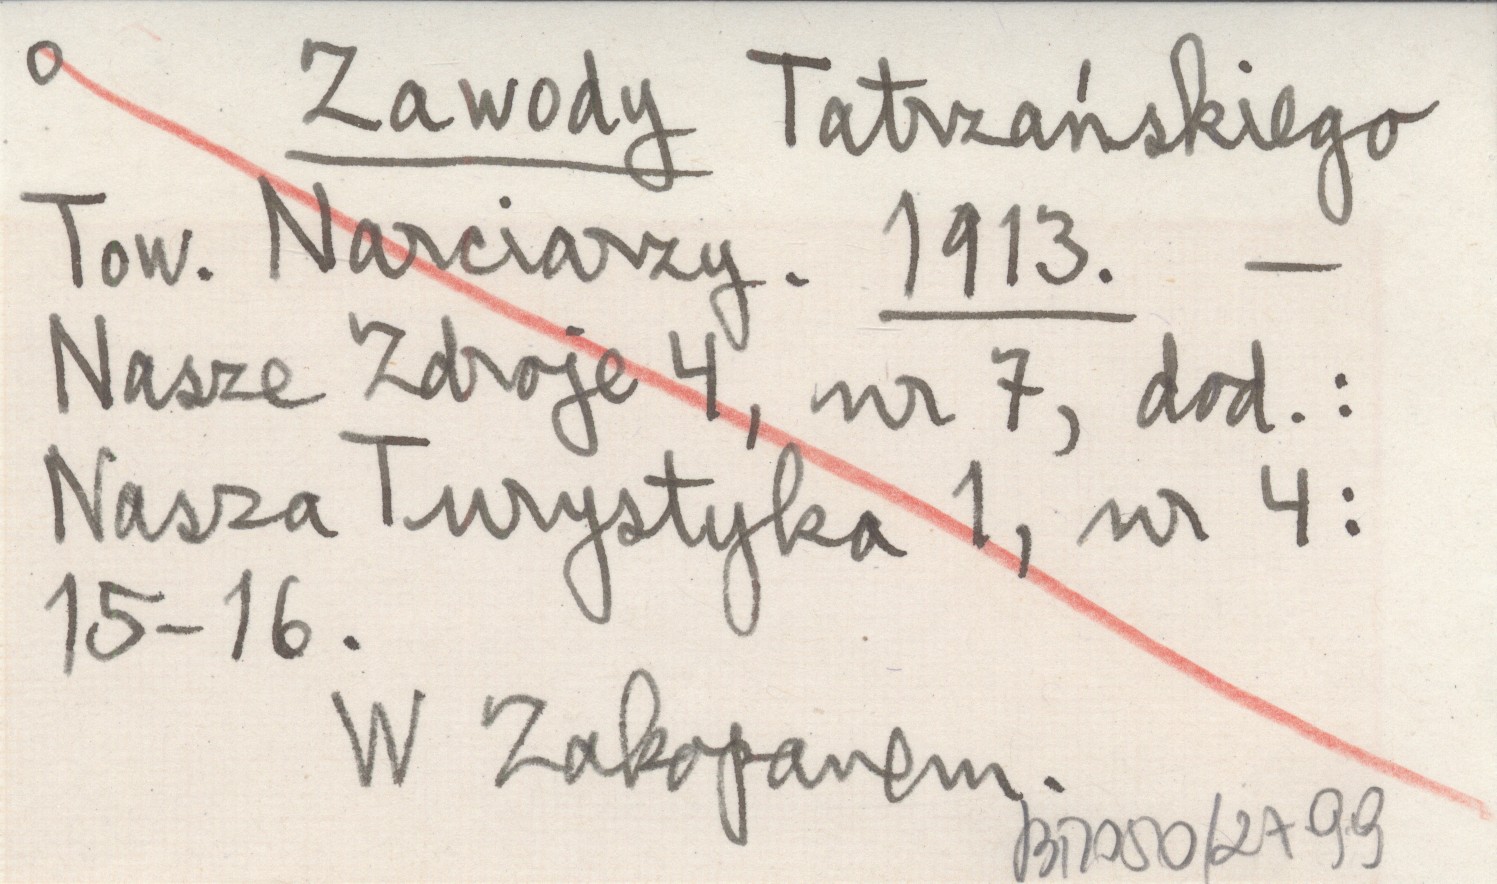 o Zawody Tatrzańskiego
Tow. Narciarzy. 1913. —
Nasze Zdroje 4, nr 7, dod.:
Nasza Turystyka 1, nr 4:
15-16.
W Zakopanem.